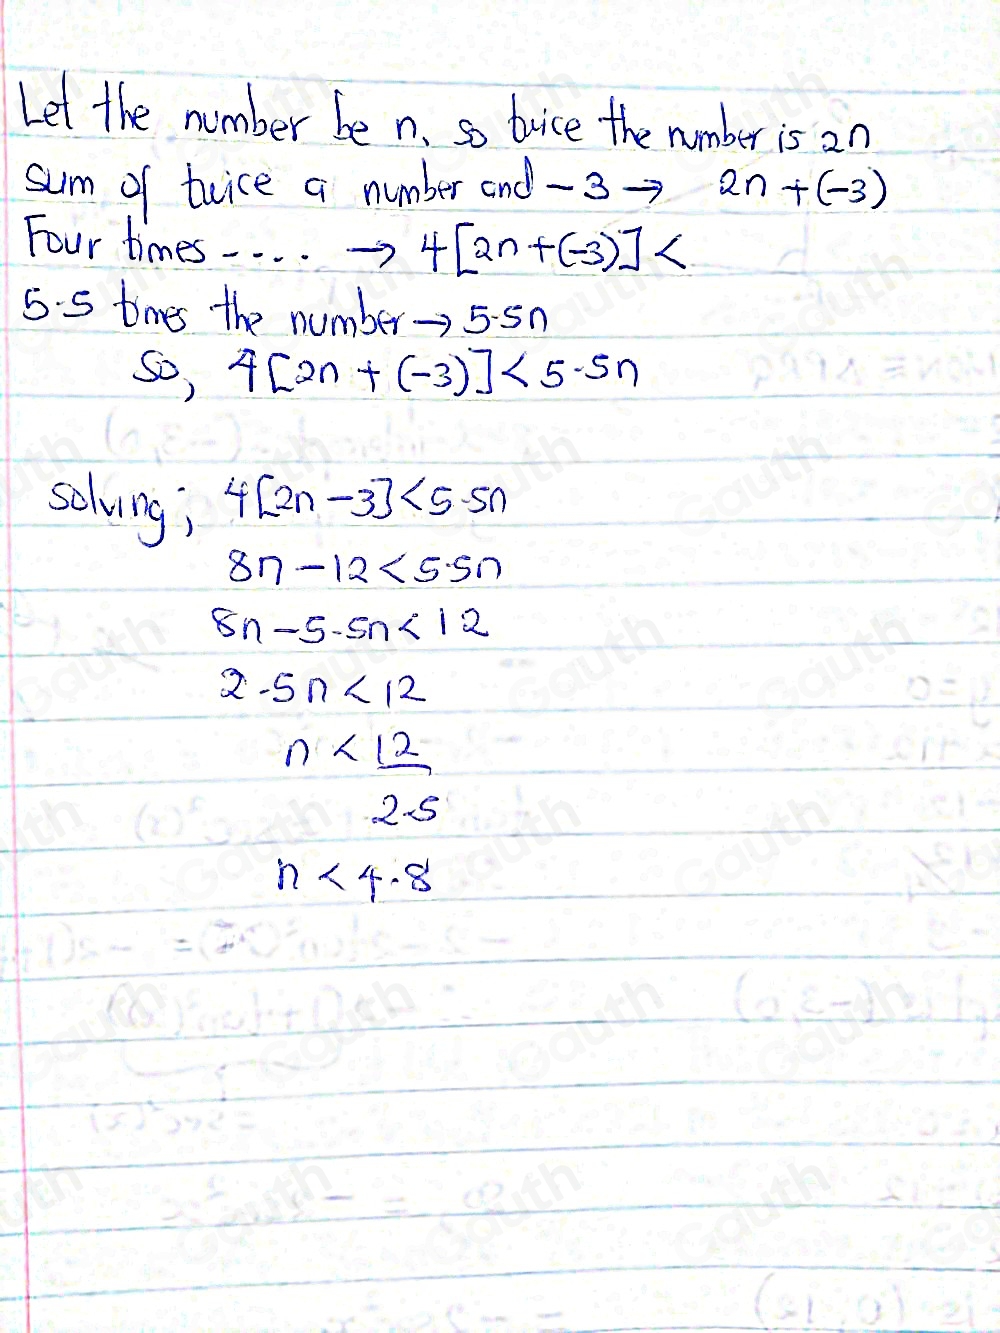 Let the number be n, so twice the number is 2n
sum of twice a number and -3 → 2n + (-3)
Four times ----. → 4[2n + (-3)] <
5.5 times the number → 5.5n
So, 4[2n + (-3)] < 5.5n
solving; 4[2n - 3] < 5.5n
8n - 12 < 5.5n
8n - 5.5n < 12
2.5n < 12
n < 12
2.5
n < 4.8